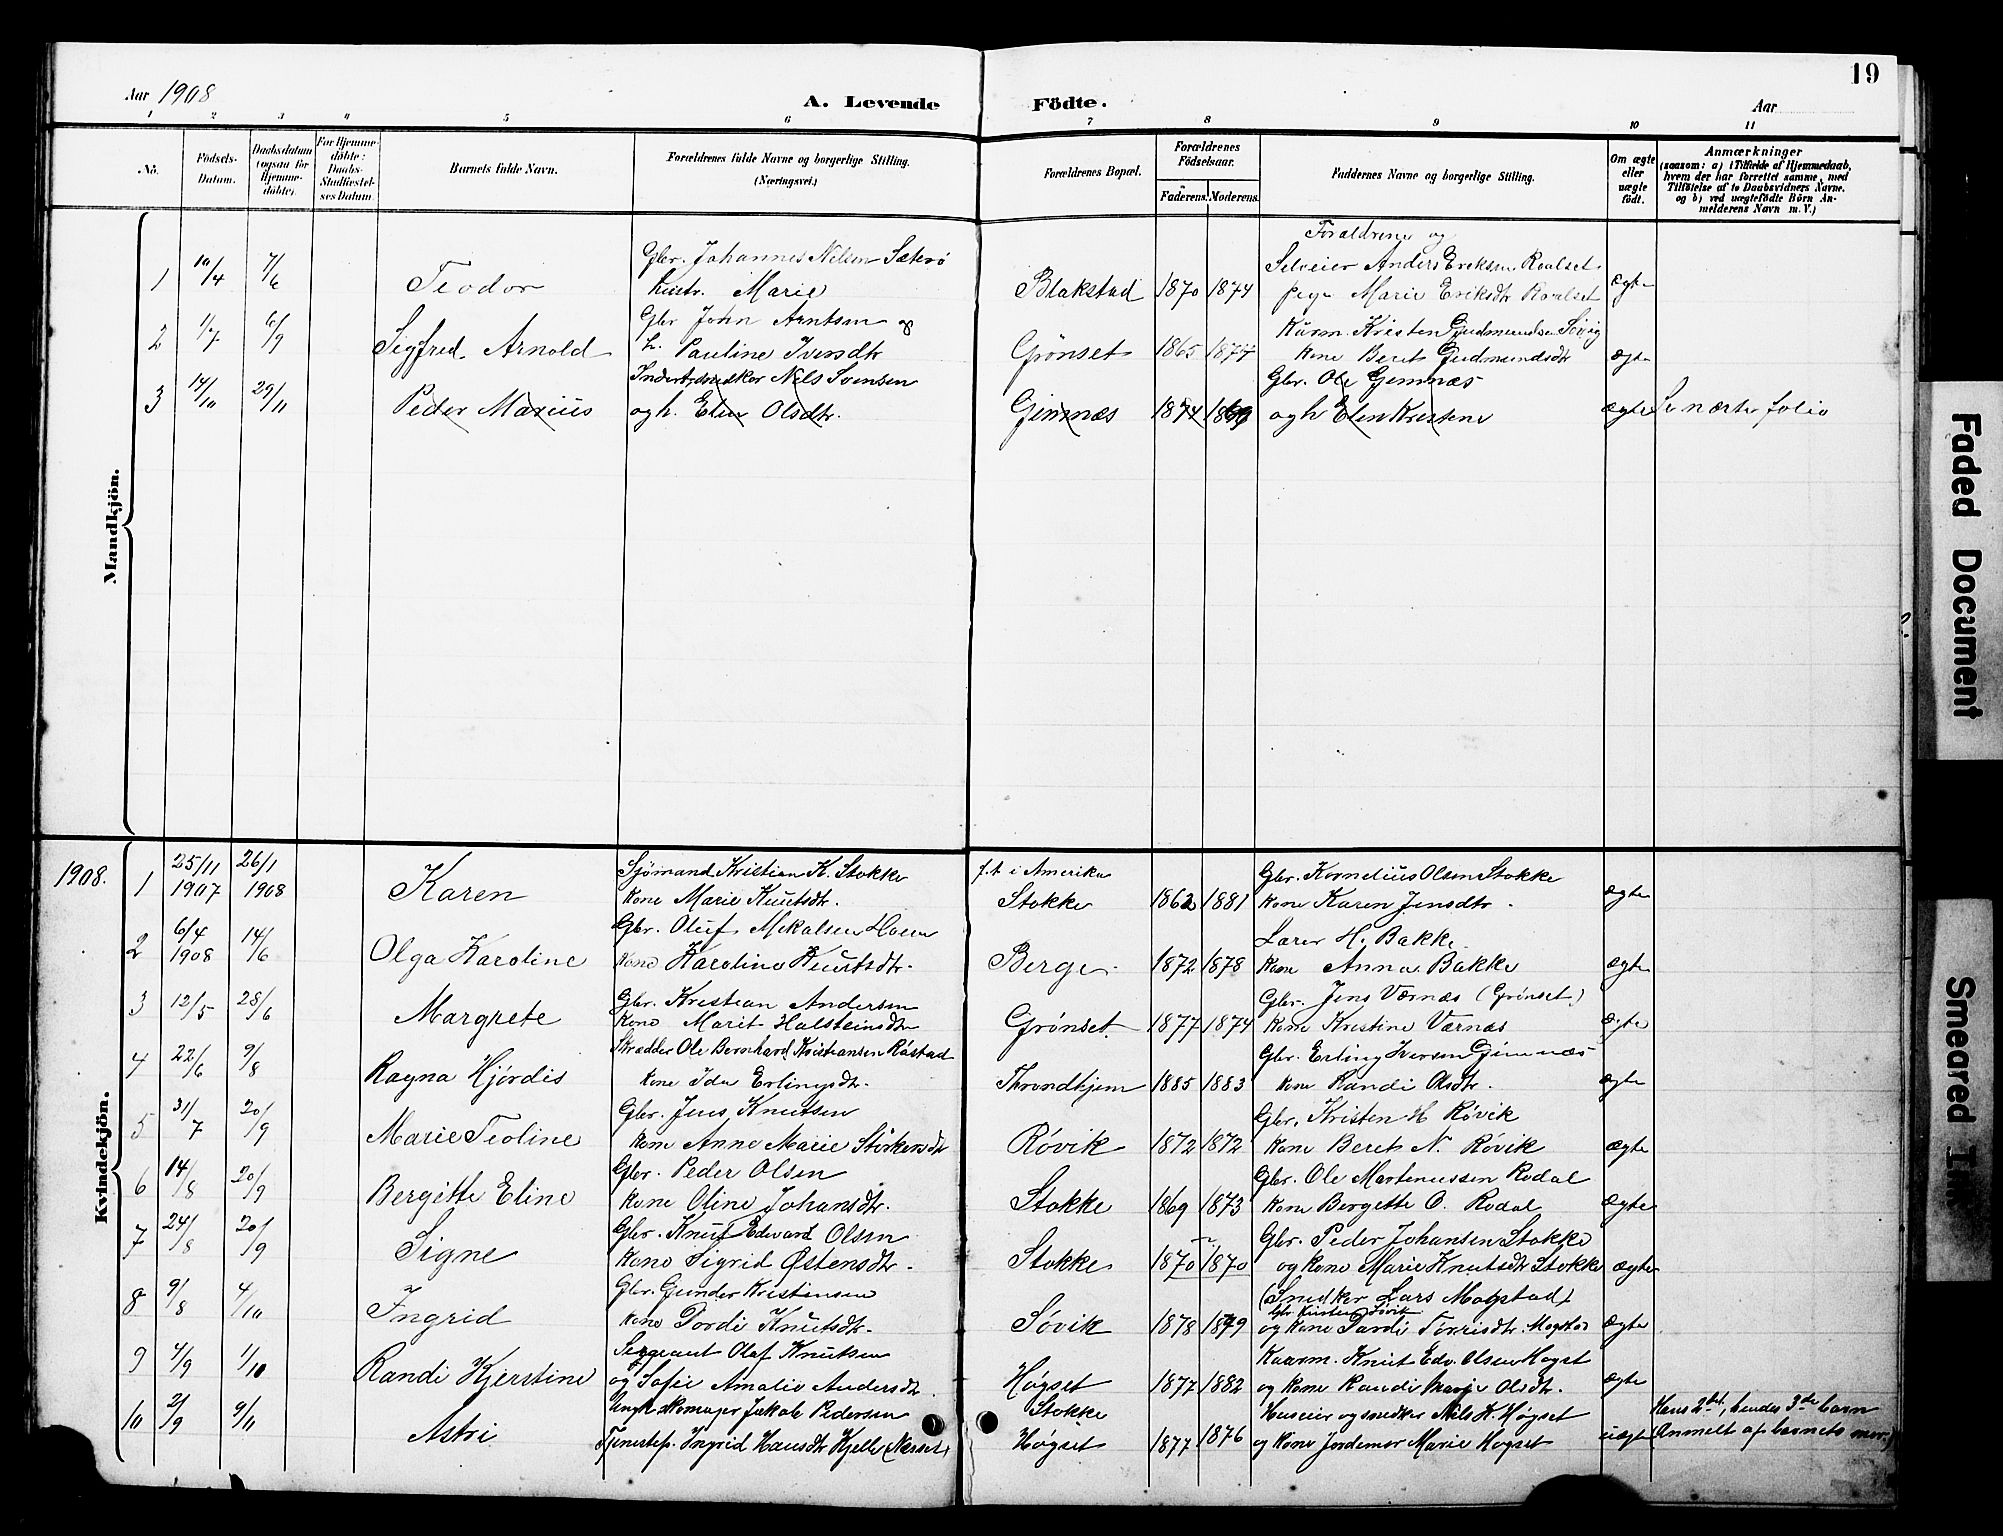 19
Aar 1908
A. Levende Födte.
Aar
1 2 3 4 5 6 7 8 9 10 11
No.
Födsels-
Datum.
Daabsdatum
(ogsaa for
Hjemme-
döbte).
For Hjemme-
döbte:
Daabs-
Stadfæstel-
ses Datum.
Barnets fulde Navn.
Forældrenes fulde Navne og borgerlige Stilling.
(Næringsvei.)
Forældrenes Bopæl.
Forældrenes
Födselsaar.
Faderens. Moderens.
Faddernes Navne og borgerlige Stilling.
Om ægte
eller
uægte
født.
Anmærkninger
(saasom: a) i Tilfælde af Hjemmedaab,
hvem der har forrettet samme, med
Tilföielse af to Daabsvidners Navne.
og b) ved uægtefödte Börn An-
melderens Navn m. V.)
Mandkjön.
Forældrene og
Gbr. Johannes Nilsen Sæterø Selveier Anders Eriksen Roalset
1 10/4 7/6 Teodor hustr. Marie Blakstad 1870 1874 pige Marie Eriksdtr Roalset ægte
Gbr John Arntsen og Kårm. Kristen Gudmundsen Søvig
2 1/7 6/9 Sigfred Arnold h. Pauline Iversdtr Grønset 1865 1877 kone Beret Gudmundsdtr ægte
Indertssnedker Nils Svensen Gbr. Ole Gimnæs
3 14/10 29/11 Peder Marius og h. Elen Olsdtr. Gimnæs 1874 1869 og h Elen Kristene ægte Se næste folio
Kvindekjön.
1908.
25/11 26/1 Sjömand Kristian K. Stokke f.t. i Amerika Gbr. Kornelius Olsen Stokke
1 1907 1908 Karen kone Marie Knutsdtr. Stokke 1862 1881 kone Karen Jensdtr. ægte
6/4 Gbr. Oluf Mikalsen Hoem Lærer H. Bakke
2 1908 14/6 Olga Karoline kone Karoline Knutsdtr. Berge 1872 1878 kone Anna Bakke ægte
Gbr. Kristian Andersen Gbr. Jens Værnæs (Grønset)
3 12/5 28/6 Margrete kone Marit Halsteinsdtr Grønset 1877 1874 kone Kristine Værnæs ægte
Skrædder Ole Bernhard Kristiansen Råstad Gbr. Erling Iversen Gimnæs
4 22/6 9/8 Ragna Hjördis kone Ida Erlingsdtr. Throndhjem 1885 1883 kone Randi Olsdtr. ægte
Gbr. Jens Knutsen Gbr. Kristen H Røvik
5 31/7 20/9 Marie Teoline kone Anne Marie Størkersdtr Røvik 1872 1872 kone Beret N. Røvik ægte
Gbr. Peder Olsen Gbr. Ole Martenussen Rodal
6 14/8 20/9 Bergitte Eline kone Oline Johansdtr. Stokke 1869 1873 kone Bergette O. Rodal ægte
Gbr. Knut Edvard Olsen Gbr. Peder Johansen Stokke
7 24/8 20/9 Signe kone Sigrid Østensdtr. Stokke 1870 1870 og kone Marie Knutsdtr Stokke ægte
Gbr. Gunder Kristensen (Snedker Lars Mogstad)
Gbr Kristen Søvik
8 9/8 4/10 Ingrid kone Dordi Knutsdtr. Søvik 1878 1879 og kone Dordi Torrisdtr. Mogstad ægte
Sergeant Olaf Knutsen Kaarm. Knut Edv. Olsen Høgset
9 4/9 1/10 Randi Kjerstine og Sofie Amalie Andersdtr. Høgset 1877 1882 og kone Randi Marie Olsdtr. ægte
Ungk. skomager Jakob Pedersen Stokke Huseier og snedker Nils K. Høgset Hans 2det, hendes 3die barn
10 2/9 9/11 Astri Tjenestep. Ingrid Hansdtr Kjelle (Næsset) Høgset 1877 1876 og kone Jordemor Marie Høgset uægte (Anmelt af barnets mor.)
Faded Document
Smeared Ink